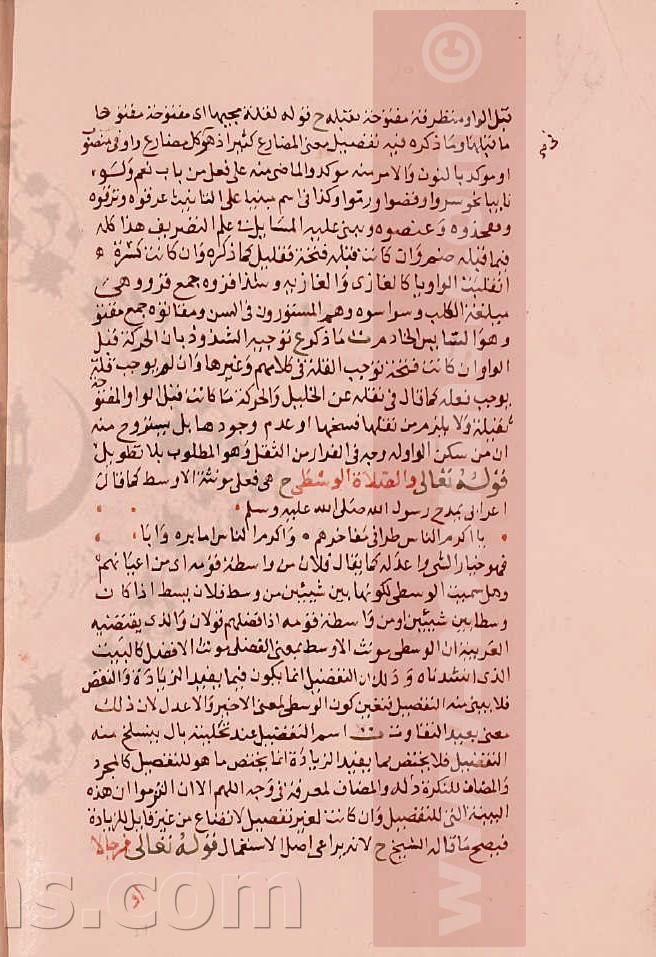 قبل الواو متطرفة مفتوحة بقتله ح قوله لقلة مجيها اى مفتوحة مفتوحا
ما قبلها وما ذكره فيه تفصيل بعنى المضارع كثير اذ هو كل مضارع واوى منصوب
او موكد بالنون والامر منه موكد والماضى منه على فعل من باب نعم
نحو سروا وقضوا ورموا وكذا فى اسم مبنيا على التانيث عرقوة وترقوة
وقمحدوة وعنصوة ويبنى عليه المسايل فى علم التصريف هذا كله
فيما قبله ضم وان كانت قبله فتحة فقليل كما ذكره وان كانت كسرة
انقلبت الواو يا كالغازى والغازيه وشذ اقروه جمع قرو وهى
ميلغة الكلب وسواسوه وهم المستوون فى السن ومقاتوه جمع مقتو
وهو السايس الخادم ما ذكره ع توجيه الشذوذ بان الحركة قبل
الواو ان كانت فتحة توجب القلة فى كلامهم وغيرها وان لم يوجب قلة
يوجب نقله كما قال فى نقله عن الخليل والحركة ما كانت قبل الواو المفتوحة
ثقيلة ولا يلزم من نقلها فسخها او عدم وجودها بل يستروح منه
ان من سكن الواو له وجه فى الفرار من الثقل وهو المطلوب بلا تطويل
قوله تعالى والصلاة الوسطى ح هى فعلى مونثة الاوسط كما قال
اعرابى يمدح رسول الله صلى الله عليه وسلم
يا اكرم الناس طرا فى مفاخرهم واكرم الناس اما بره وابا
فهو خيار الشى واعدله كما يقال فلان من واسطة قومه اى من اعيانهم
وهل سميت الوسطى لكونها بين شيئين من وسط فلان يسط اذا كان
وسطا بين شيئين او من واسطة قومه اذا فضلهم قولان والذى يقتضيه
العربية ان الوسطى مونث الاوسط بمعنى الفضلى مونث الافضل كالبيت
الذى انشدناه وذلك ان التفضيل انما يكون فيما يفيد الزيادة والنقص
فلا يبنى منه التفضيل فتعين كون الوسطى بمعنى الاخير والاعدل لان ذلك
معنى يفيد التفاوت اسم التفضيل عند تحليته بال ينسلخ منه
التفضيل فلا يختص بما يفيد الزيادة انما يختص ما هو للتفضيل كالمجرد
والمضاف للنكرة دله والمضاف لمعرفة فى وجه اللهم الا ان التزموا ان هذه
البنية التى للتفضيل وان كانت لغير تفضيل لا تصاغ من غير قابل للزيادة
فيصح ما قاله الشيخ ح لانه يراعى اصل الاستعمال قوله تعالى فرجالا
او